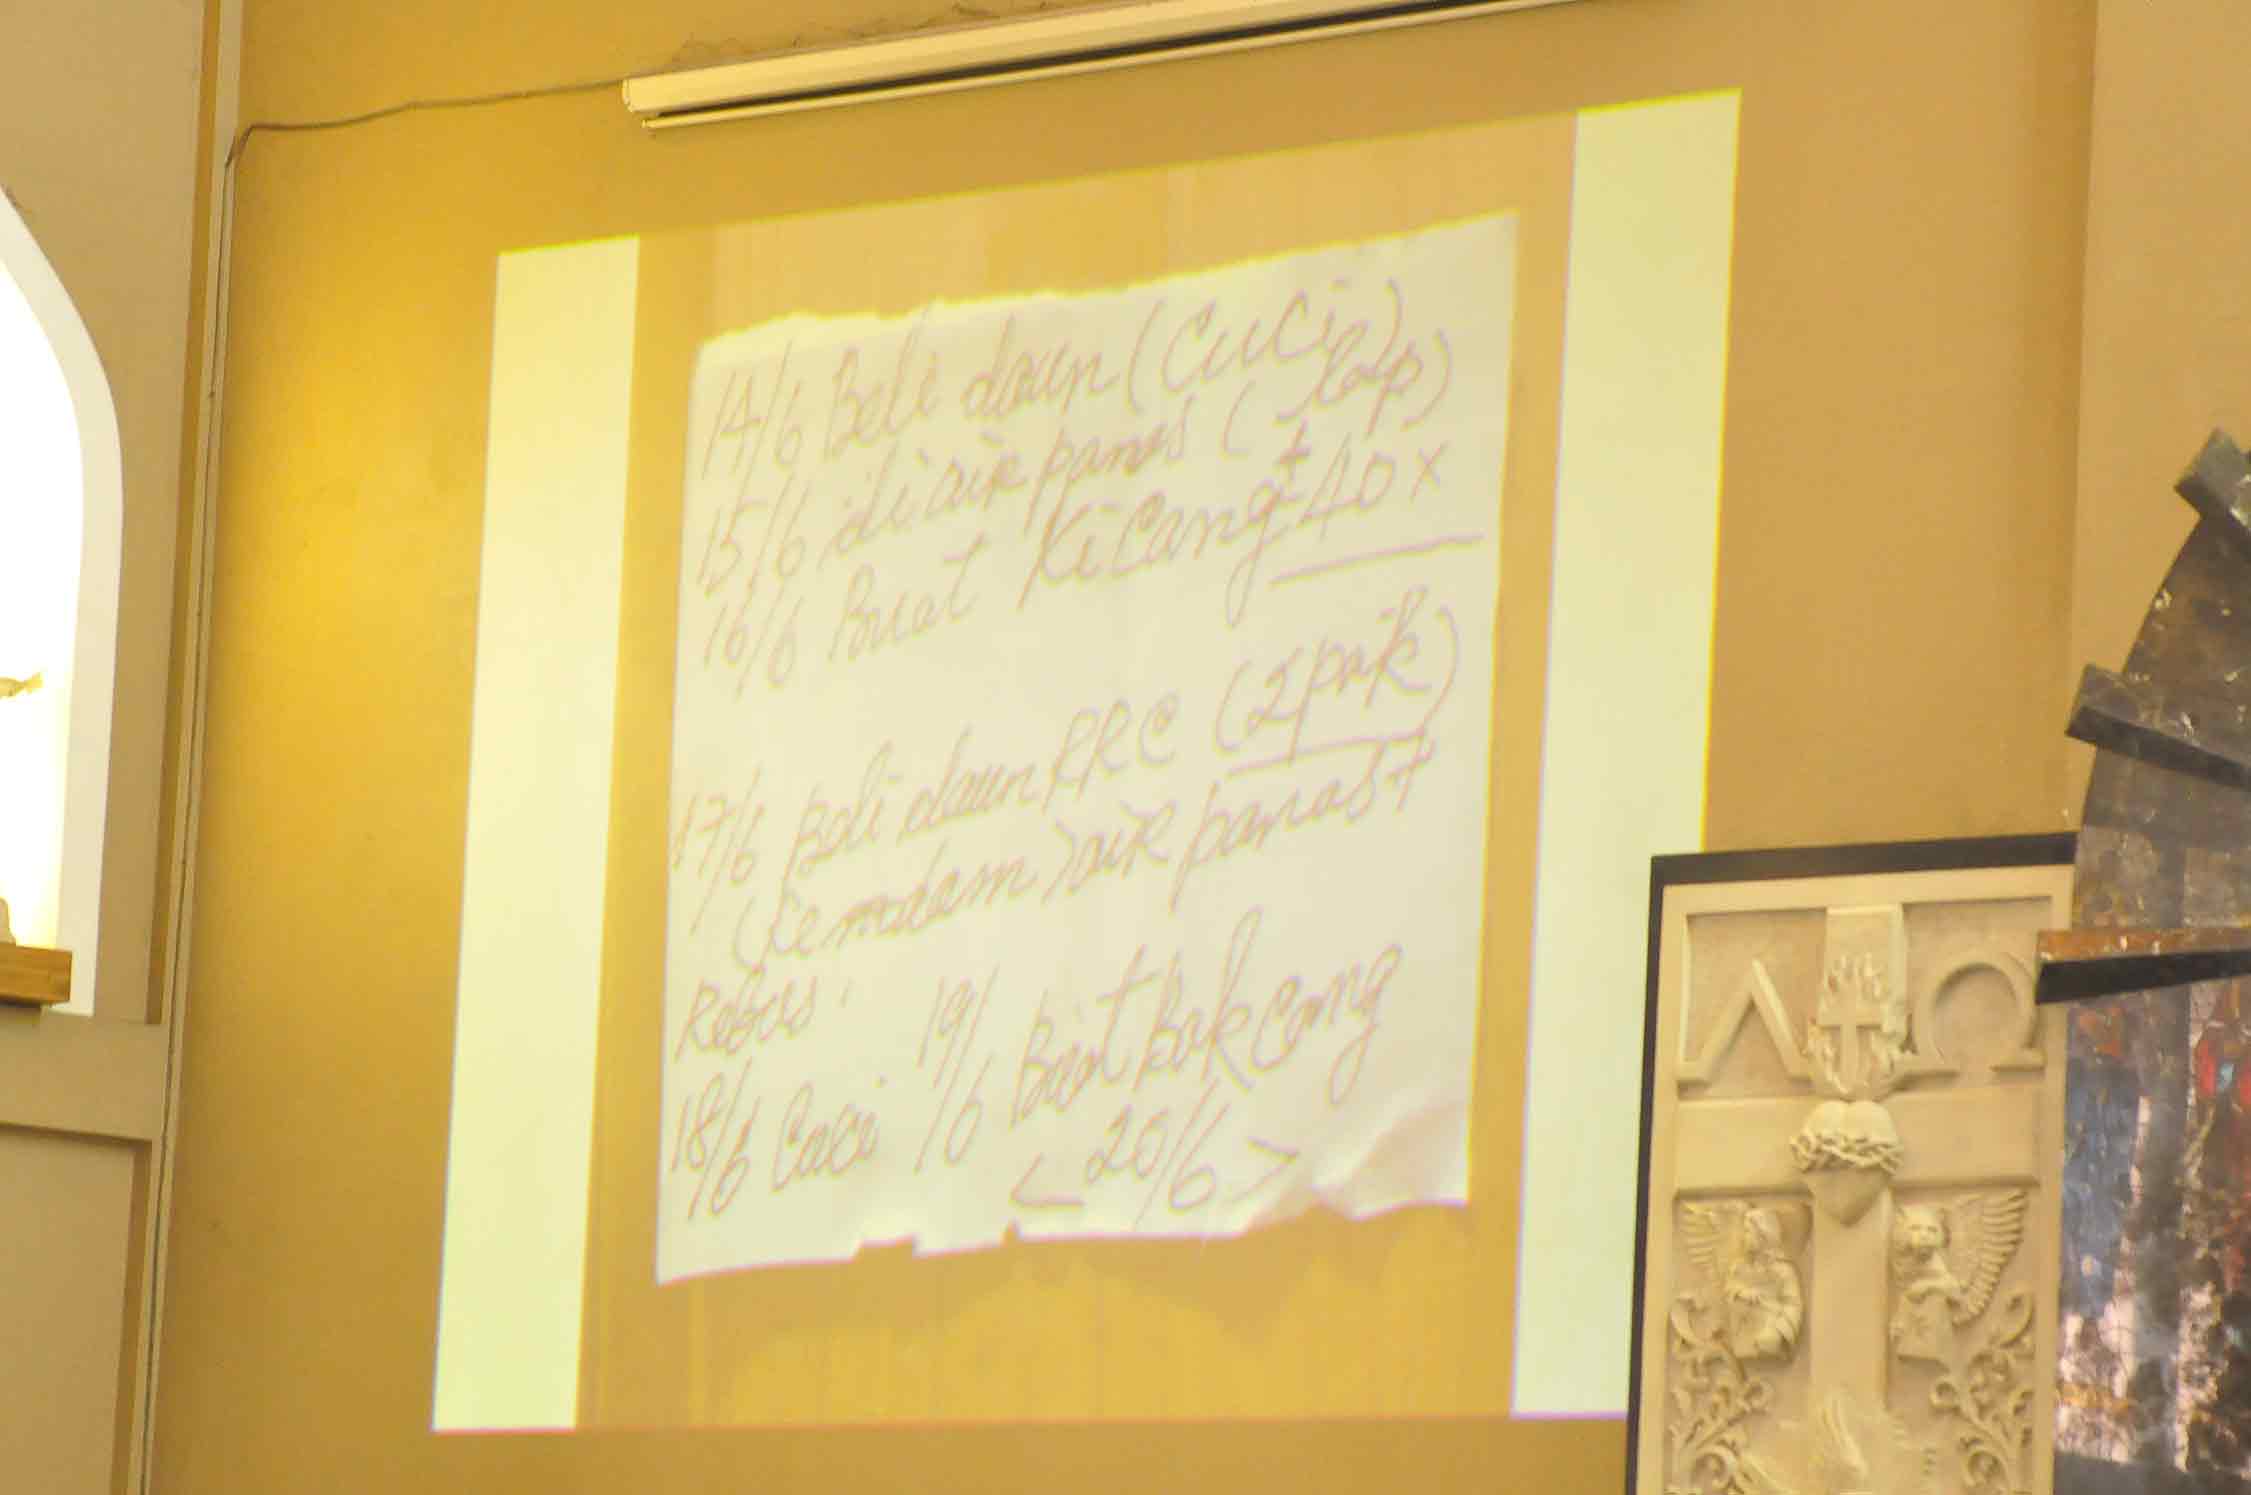 14/6 Beli daun (Cuci)
15/6 di air panas (lap)
16/6 Buat Kicang ± 40 x
17/6 Beli daun RRC (2 pak)
(Remdam) air panas +
Rebus.
18/6 Cuci 19/6 Buat Bakcang
< 20/6 >
Α Ω